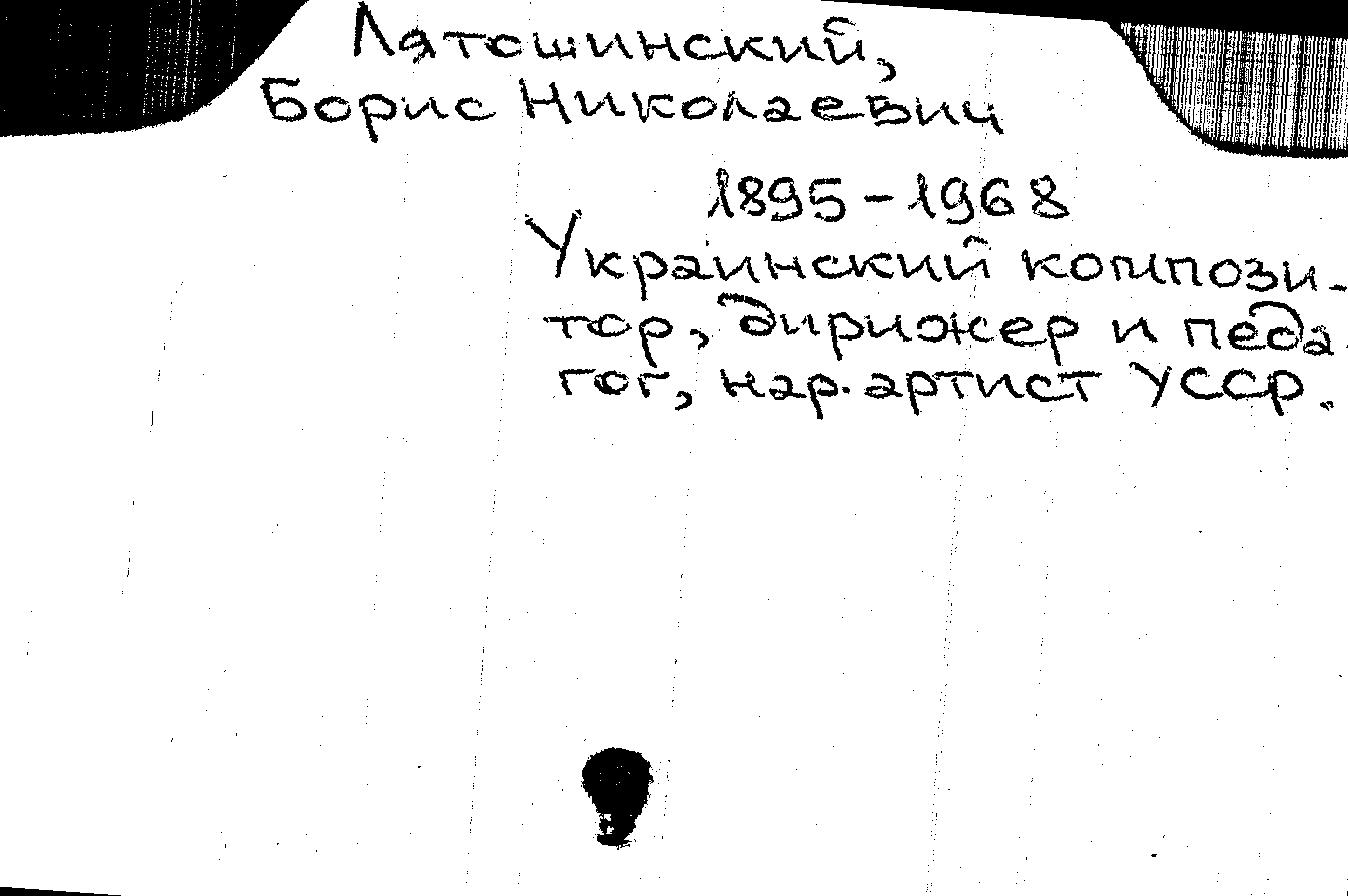 Лятошинский,
Борис Николаевич
1895-1968
Украинский компози-
тор, дирижер и педа
гог, нар. артист УССР.